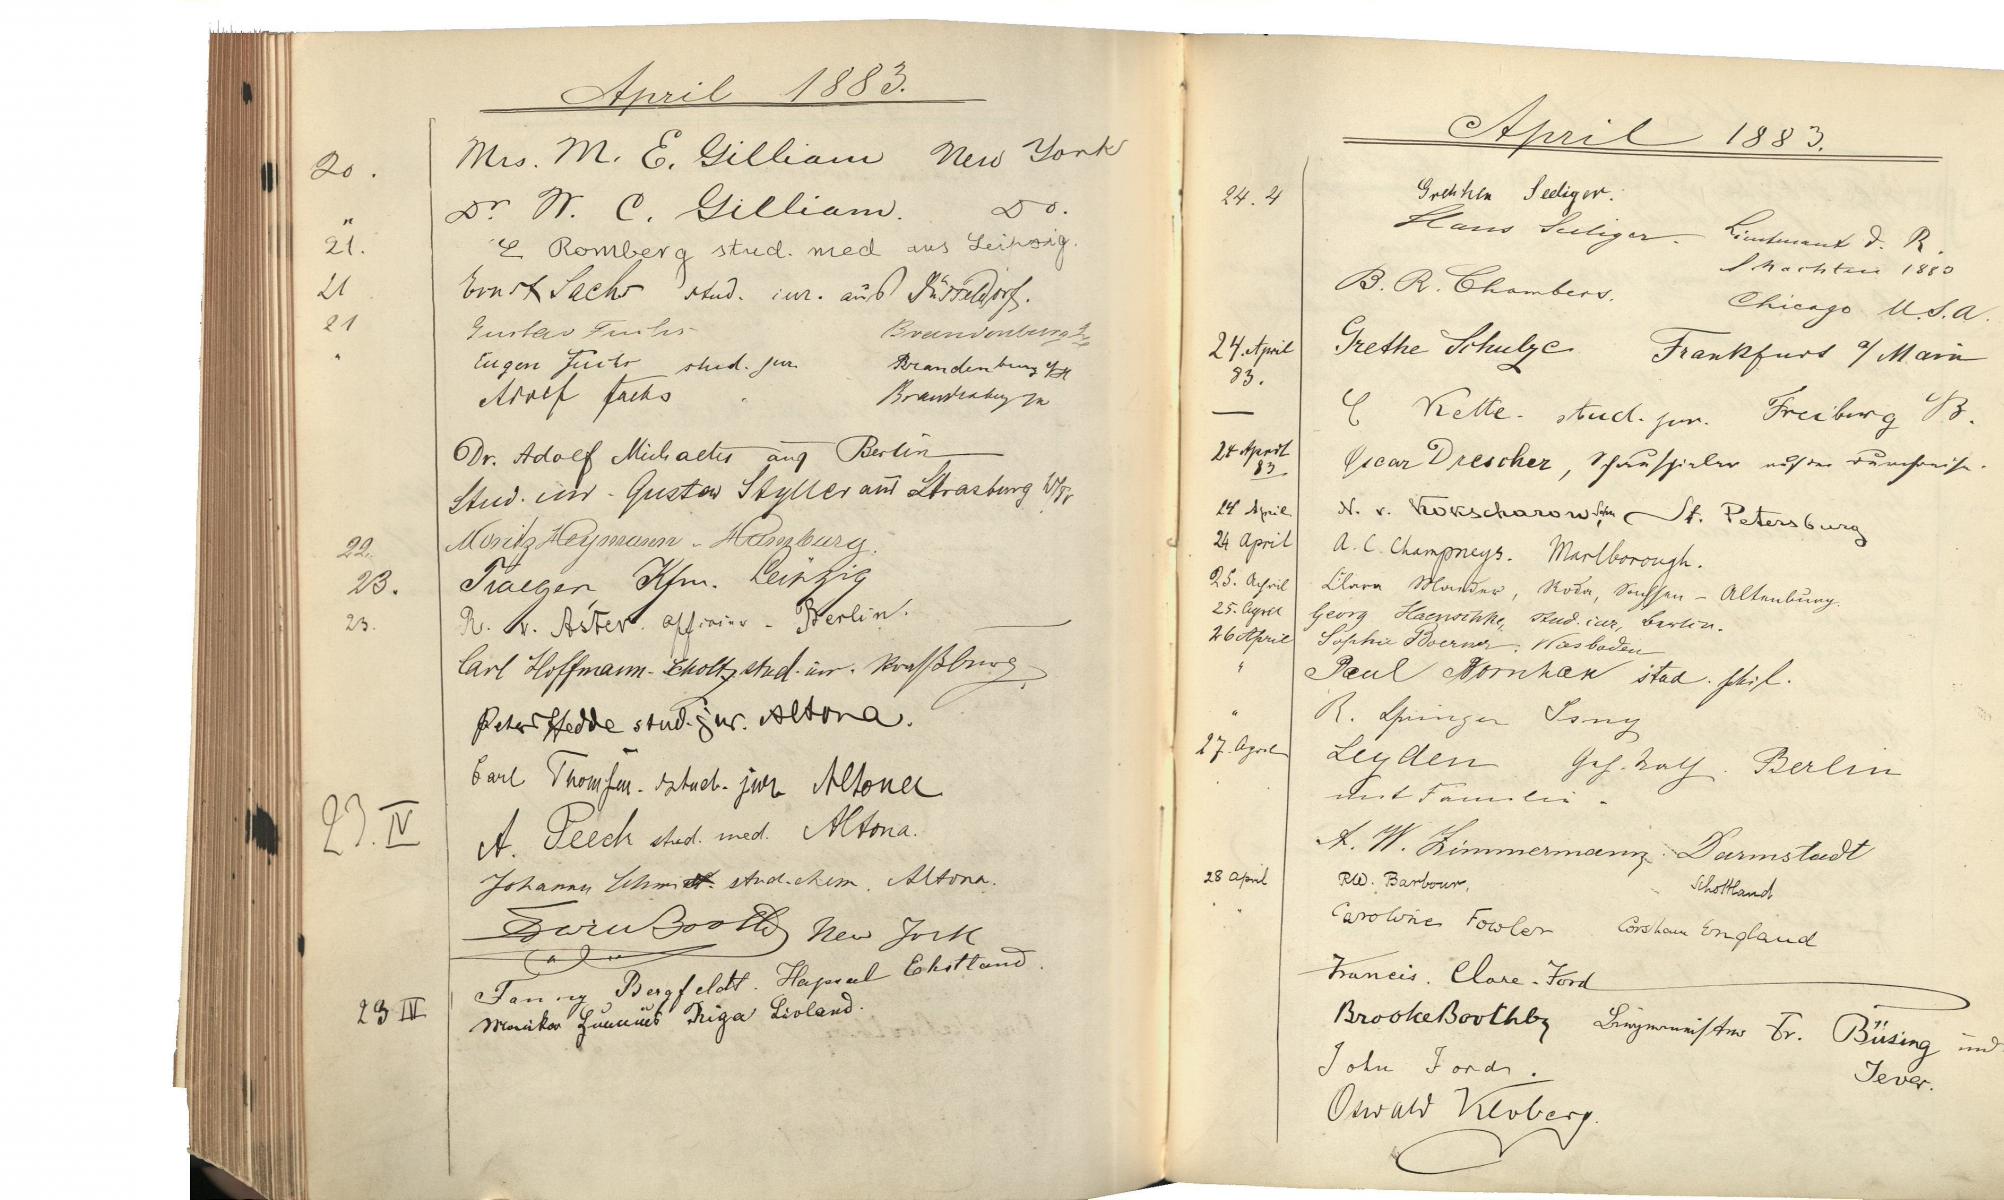 April 1883.
20. Mrs. M. E. Gilliam New York
" Dr W. C. Gilliam. Do.
21. E Romberg stud. med aus Leipzig.
21 Ernst Sachs stud. iur. aus Düsseldorf.
21 Gustav Fuchs Brandenburg
" Eugen Fuchs stud. jur. Brandenburg a/H
Adolf Fuchs Brandenburg
Dr. Adolf Michaelis aus Berlin
Stud. iur. Gustav Styller aus Strasburg W/Pr
22. Moritz Heymann - Hamburg.
23. Traeger, Kfm. Leipzig
23. R. v. Aster. - Berlin.
Carl Hoffmann-Scholtz stud. iur.
Peter Hedde stud. jur. Altona.
Carl Thomsen. stud. jur Altona
23. IV A. Peech stud. med. Altona.
Johannes stud. chem. Altona.
Booth New York
Fanny Bergfeldt. Hapsal Ehstland.
23 IV Riga Livland.
April 1883.
24. 4 Grethchen Seeliger.
Hans Seeliger. Lieutenant d. R.
1880
B. R. Chambers. Chicago U.S.A.
24. April 83. Grethe Schulze Frankfurt a/Main
— C Kette. stud. jur. Freiburg i/B.
24 April 83. Oscar Drescher, Schauspieler auf der Durchreise.
24 April N. v. Kokscharow, Sohn St. Petersburg
24 April A. C. Champneys. Marlborough.
25. April Clara Roda, Sachsen - Altenburg.
25. April Georg Haenschke, stud. iur, Berlin.
26 April Sophie Boerner. Wiesbaden
" Paul Bornhak stud. phil.
" R. Springer Isny
27. April Leyden Geh. Rath. Berlin
mit Familie.
A. W. Zimmermann. Darmstadt
28 April RW. Barbour, Schottland
" Caroline Fowler Corsham England
Francis. Clare-Ford
Brooke Boothby Bürgermeister Dr. Büsing und
John Ford. Jever.
Oswald Kloberg.